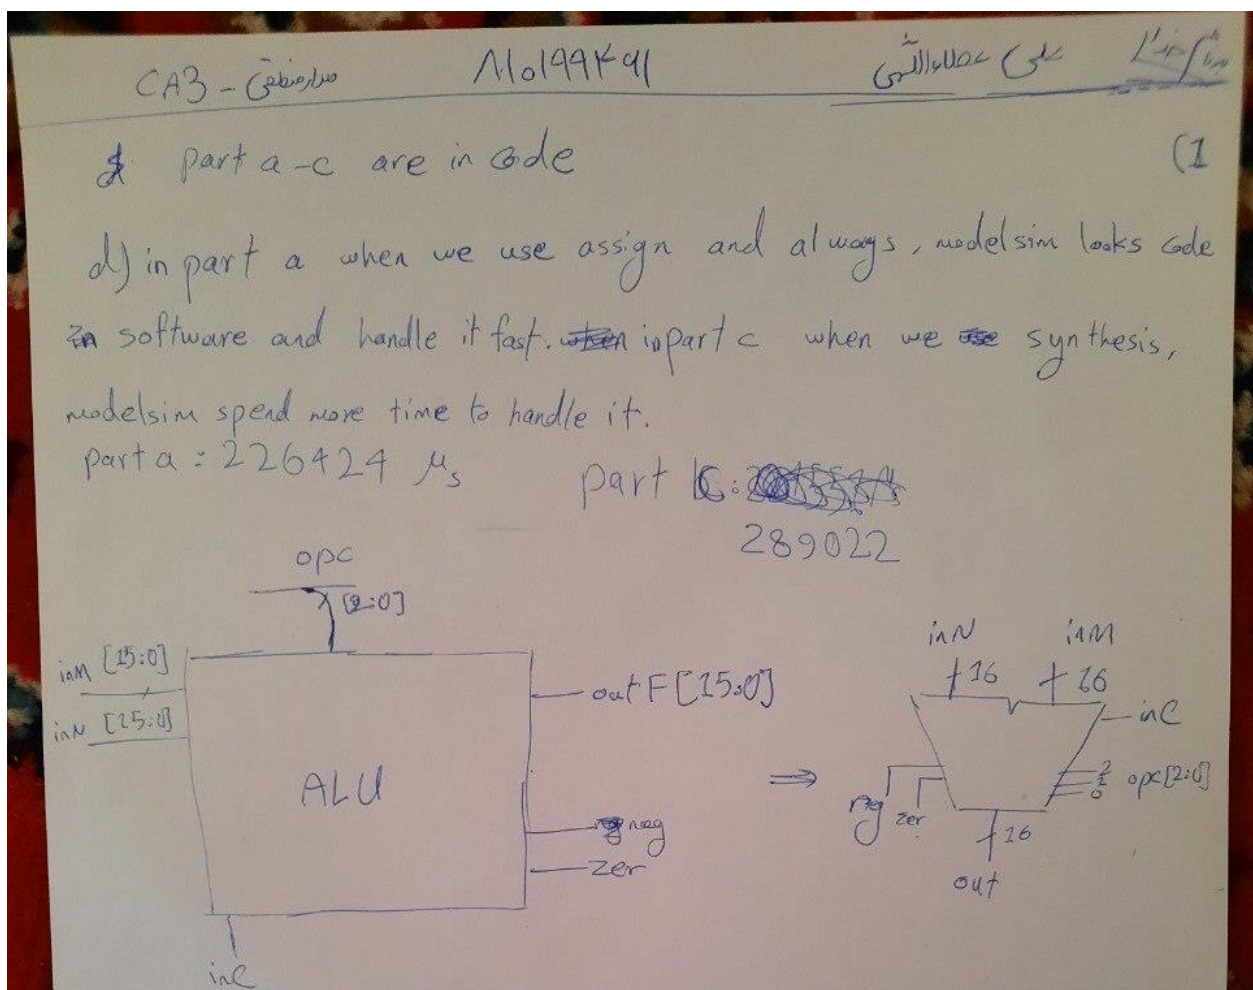 علی عطااللهی ۸۱۰۱۹۹۴۹۱ CA3 - مدار منطقی
part a-c are in code (1
d) in part a when we use assign and always, modelsim looks code
software and handle it fast. in part c when we synthesis,
modelsim spend more time to handle it.
part a : 226424 μs part C:
289022
opc
[2:0]
inM [15:0]
inN [15:0]
ALU
out F [15:0]
neg
zer
inC
⇒
inN inM
16 16
inC
2
1
0
opc[2:0]
neg zer
16
out